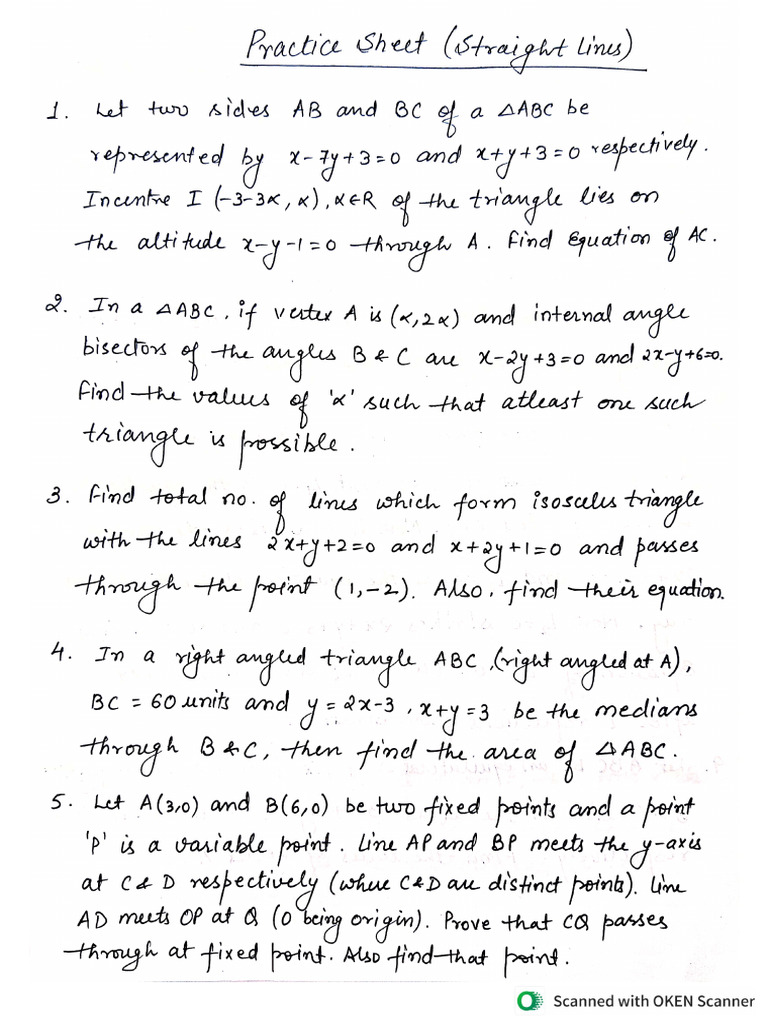 Practice Sheet (Straight Lines)
1. Let two sides AB and BC of a △ABC be
represented by x-7y+3=0 and x+y+3=0 respectively.
Incentre I (-3-3α, α), α∈R of the triangle lies on
the altitude x-y-1=0 through A. Find Equation of AC.
2. In a △ABC, if vertex A is (α,2α) and internal angle
bisectors of the angles B & C are x-2y+3=0 and 2x-y+6=0.
Find the values of 'α' such that atleast one such
triangle is possible.
3. Find total no. of lines which form isosceles triangle
with the lines 2x+y+2=0 and x+2y+1=0 and passes
through the point (1,-2). Also, find their equation.
4. In a right angled triangle ABC, (right angled at A),
BC = 60 units and y = 2x-3, x+y=3 be the medians
through B & C, then find the area of △ABC.
5. Let A(3,0) and B(6,0) be two fixed points and a point
'P' is a variable point. Line AP and BP meets the y-axis
at C & D respectively (where C & D are distinct points). Line
AD meets OP at Q (O being origin). Prove that CQ passes
through at fixed point. Also find that point.
Scanned with OKEN Scanner